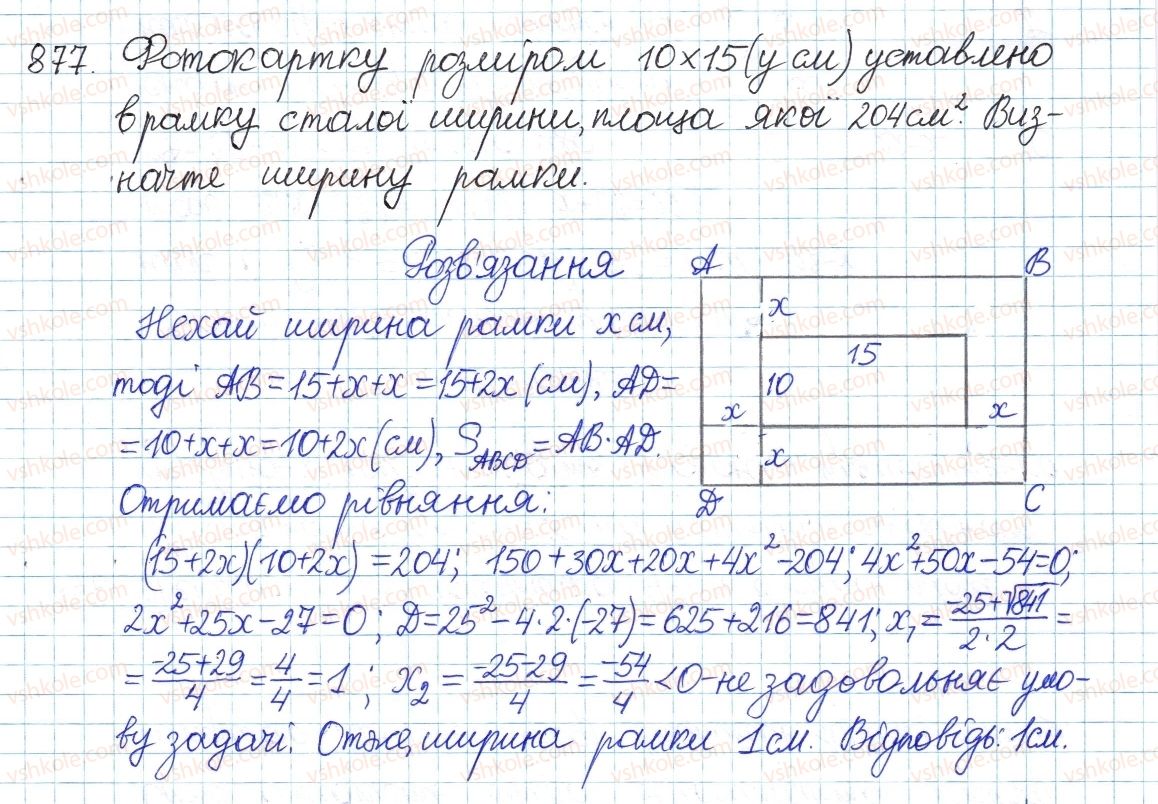 877. Фотокартку розміром 10×15(у см) уставлено
в рамку сталої ширини, площа якої 204 см². Виз-
начте ширину рамки.
Розв'язання
A B
Нехай ширина рамки x см,
x
15
тоді AB=15+x+x=15+2x (см), AD=
10
x x
=10+x+x=10+2x (см), S_ABCD=AB·AD.
x
Отримаємо рівняння:
D C
(15+2x)(10+2x)=204; 150+30x+20x+4x²-204; 4x²+50x-54=0;
2x²+25x-27=0; D=25²-4·2·(-27)=625+216=841; x₁=(-25+√841)/(2·2)=
=(-25+29)/4=4/4=1; x₂=(-25-29)/4=-54/4<0-не задовольняє умо-
ву задачі. Отже, ширина рамки 1см. Відповідь: 1см.
vshkole.com